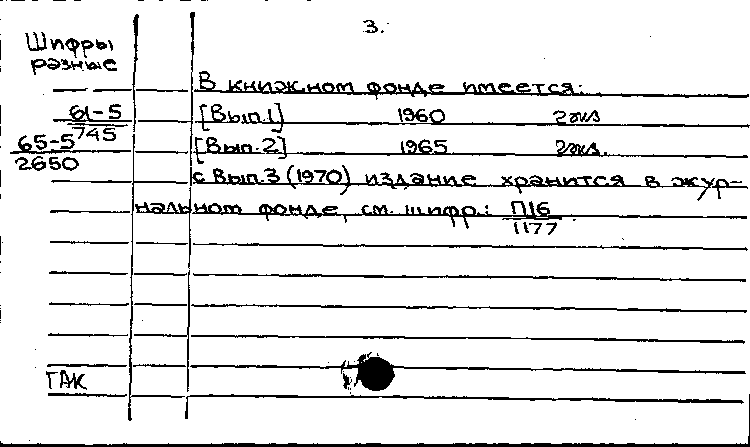 3.
Шифры
разные
В книжном фонде имеется:
61-5
745
[Вып.1] 1960 2 экз
65-5
2650
[Вып.2] 1965 2 экз.
с Вып.3 (1970) издание хранится в жур-
нальном фонде, см. шифр.: П16
1177
ГАК